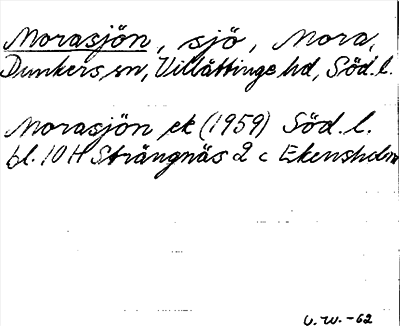 Morasjön, sjö, Mora,
Dunkers sn, Villåttinge hd, Söd.l.
Morasjön ek (1959) Söd.l.
bl. 10 H Strängnäs 2 c Ekensholm
U.W.-62